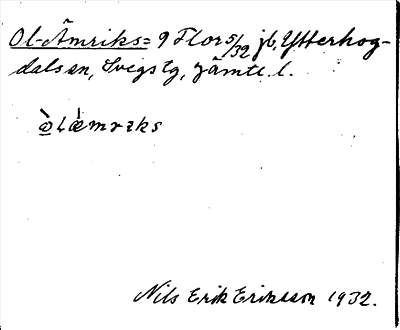 Ol-Ämriks= 9 Flor 5/32 jb, Ytterhog-
dals sn, Svegs tg, Jämtl. l.
òlǽmrᵻks
Nils Erik Eriksson 1932.